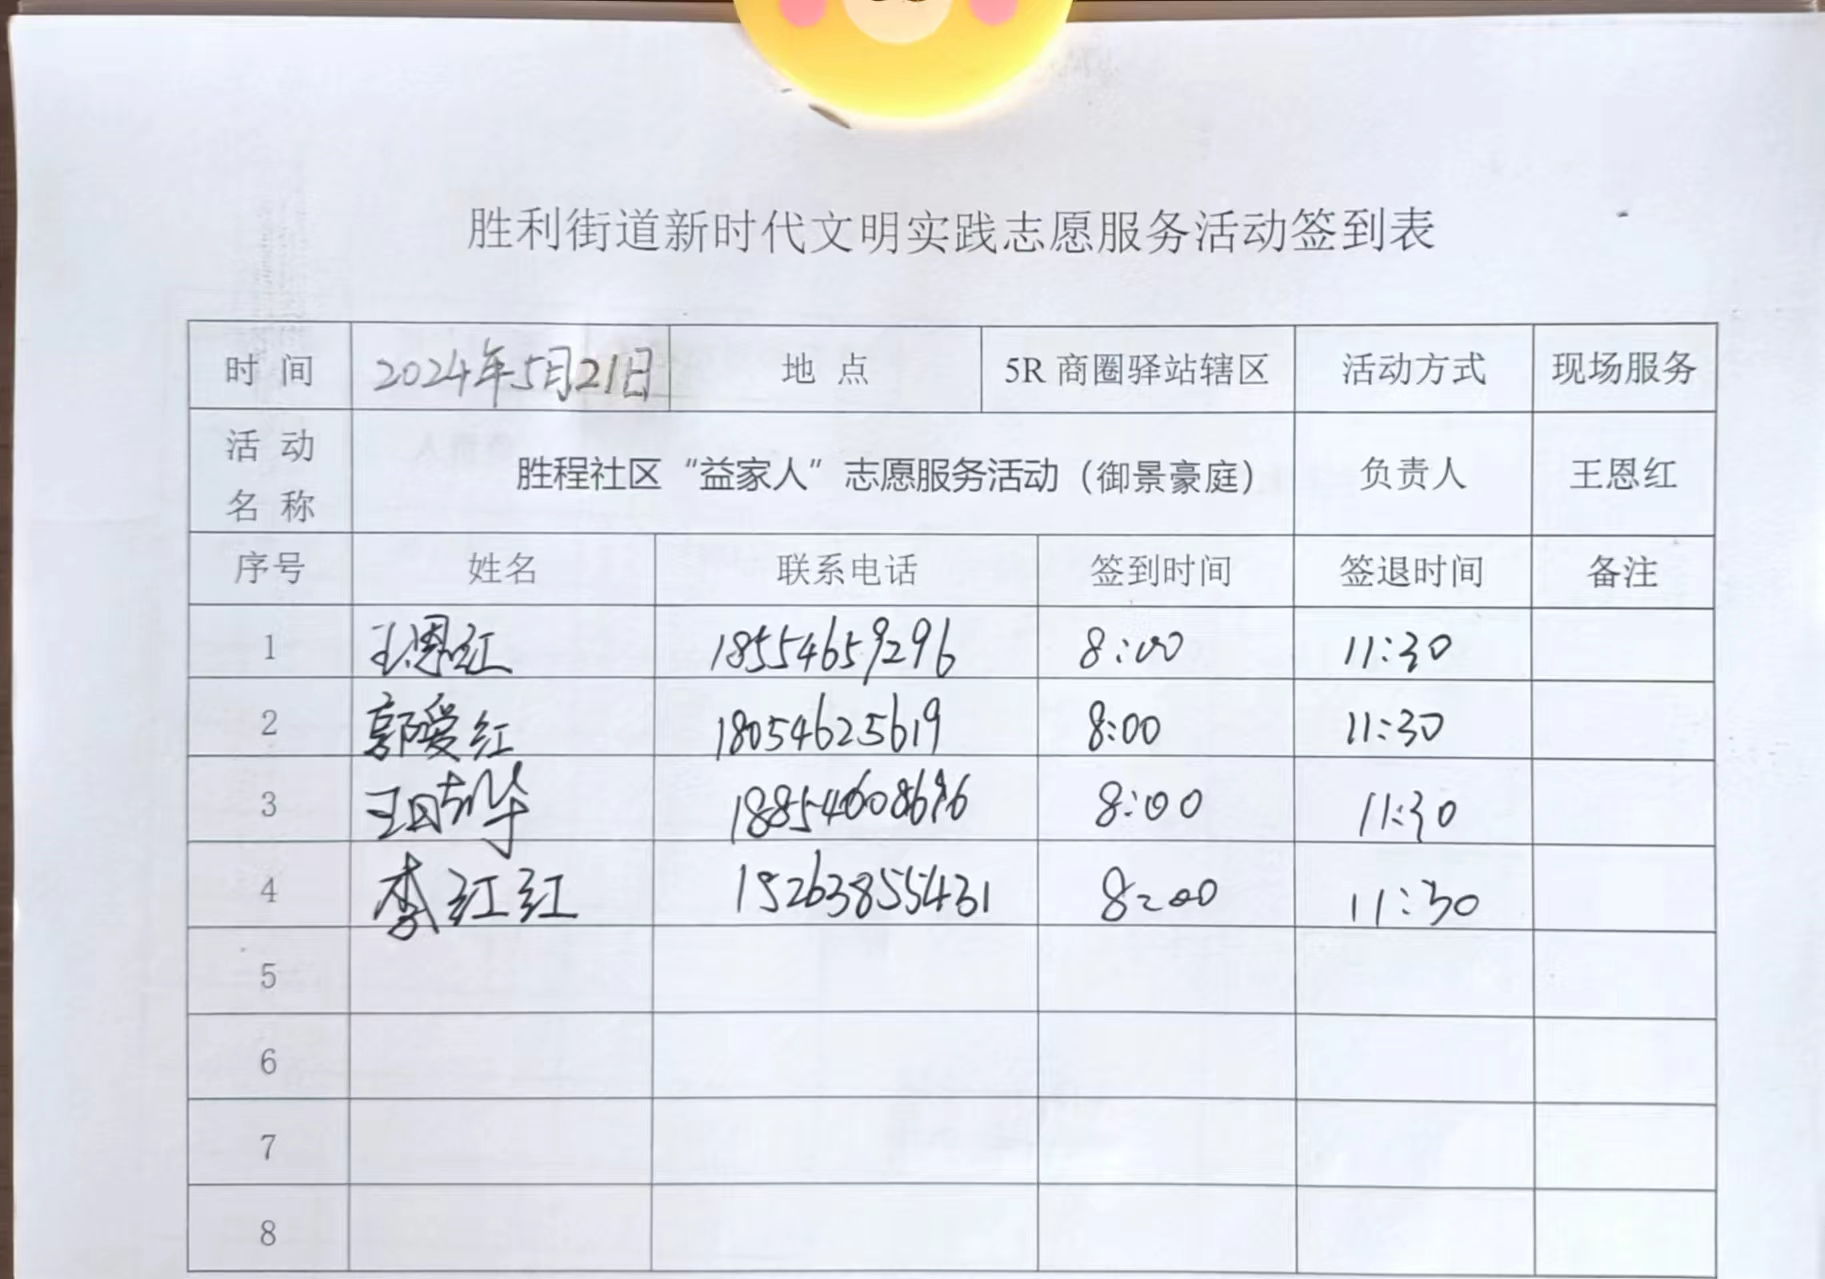 胜利街道新时代文明实践志愿服务活动签到表
时 间 2024年5月21日 地 点 5R 商圈驿站辖区 活动方式 现场服务
活 动 名 称 胜程社区“益家人”志愿服务活动（御景豪庭） 负责人 王恩红
序号 姓名 联系电话 签到时间 签退时间 备注
1 王恩红 18554659296 8:00 11:30
2 郭爱红 18054625619 8:00 11:30
3 8:00 11:30
4 李红红 15263855431 8:00 11:30
5
6
7
8